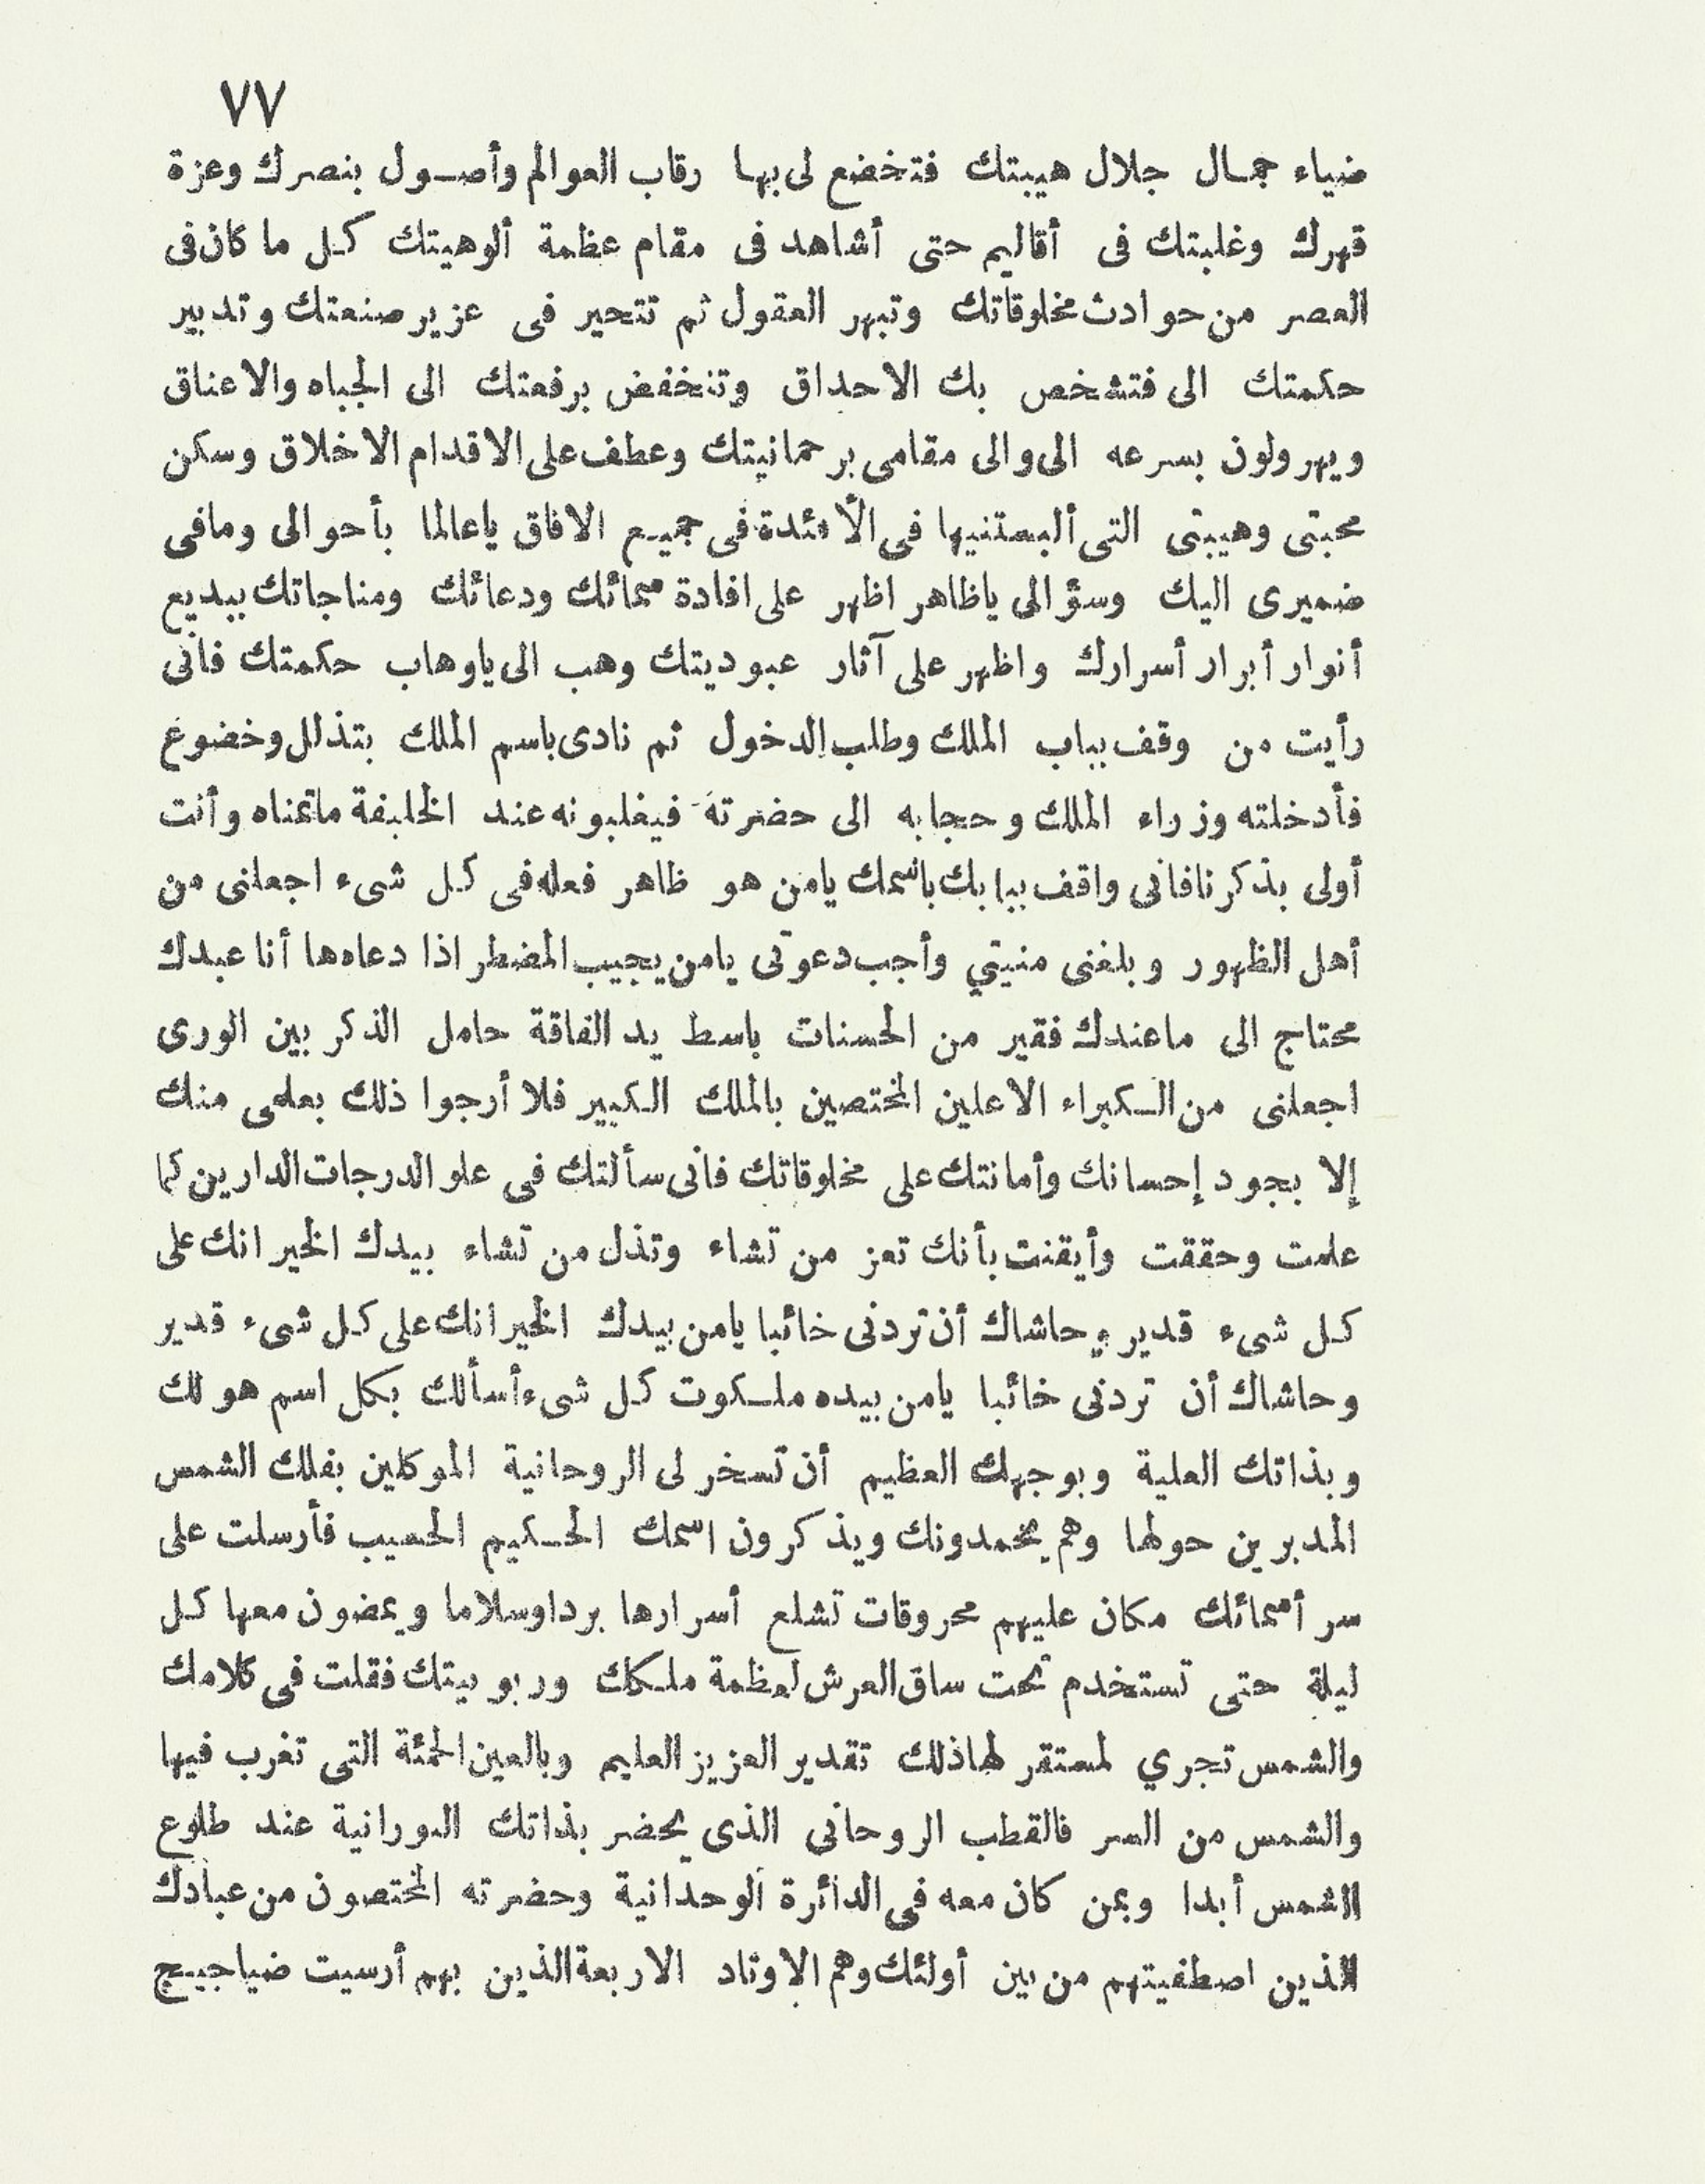 ٧٧
ضياء جمال جلال هيبتك فتخضع لى بها رقاب العوالم وأصول بنصرك وعزة
قهرك وغلبتك فى أقاليم حتى أشاهد فى مقام عظمة ألوهيتك كل ما كان فى
العصر من حوادث مخلوقاتك وتبهر العقول ثم تتحير فى عزيز صنعتك وتدبير
حكمتك الى فتشخص بك الاحداق وتنخفض برفعتك الى الجباه والاعناق
ويهرولون بسرعه الى والى مقامى برحمانيتك وعطف على الاقدام الاخلاق وسكن
محبتى وهيبتى التى ألبستنيها فى الأفئدة فى جميع الافاق ياعالما بأحوالى ومافى
ضميرى اليك وسؤالى ياظاهر اظهر على افادة سمائك ودعائك ومناجاتك ببديع
أنوار أبرار أسرارك واظهر على آثار عبوديتك وهب الى ياوهاب حكمتك فانى
رأيت من وقف بباب الملك وطلب الدخول ثم نادى باسم الملك بتذلل وخضوع
فأدخلته وزراء الملك وحجابه الى حضرته فيغلبونه عند الخليفة ماتمناه وأنت
أولى بذكرنا فانى واقف ببابك باسمك يامن هو ظاهر فعله فى كل شىء اجعلنى من
أهل الظهور وبلغنى منيتي وأجب دعوتى يامن يجيب المضطر اذا دعاه ها أنا عبدك
محتاج الى ماعندك فقير من الحسنات باسط يد الفاقة حامل الذكر بين الورى
اجعلنى من الكبراء الاعلين المختصين بالملك الكبير فلا أرجوا ذلك بعلمى منك
إلا بجود إحسانك وأمانتك على مخلوقاتك فانى سألتك فى علو الدرجات الدارين كما
علمت وحققت وأيقنت بأنك تعز من تشاء وتذل من تشاء بيدك الخير انك على
كل شىء قدير وحاشاك أن تردنى خائبا يامن بيدك الخير انك على كل شىء قدير
وحاشاك أن تردنى خائبا يامن بيده ملكوت كل شىء أسألك بكل اسم هو لك
وبذاتك العلية وبوجهك العظيم أن تسخر لى الروحانية الموكلين بفلك الشمس
المدبرين حولها وهم يحمدونك ويذكرون اسمك الحكيم الحسيب فأرسلت على
سر أسمائك مكان عليهم محروقات تشلع أسرارها برداوسلاما ويمضون معها كل
ليلة حتى تستخدم تحت ساق العرش لعظمة ملكك وربوبيتك فقلت فى كلامك
والشمس تجري لمستقر لهاذلك تقدير العزيز العليم وبالعين الحمئة التى تغرب فيها
والشمس من السر فالقطب الروحانى الذى يحضر بذاتك النورانية عند طلوع
الشمس أبدا وبمن كان معه فى الدائرة الوحدانية وحضرته المختصون من عبادك
الذين اصطفيتهم من بين أولئك وهم الاوتاد الاربعة الذين بهم أرسيت ضياجيج